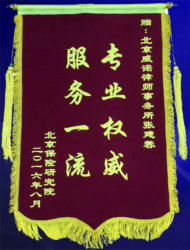 赠：北京威诺律师事务所张建蓉
专业权威
服务一流
北京保险研究院
二〇一六年八月